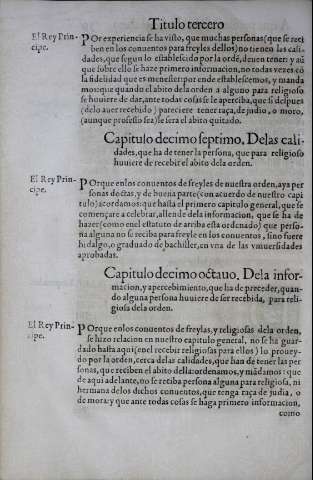 Titulo tercero
El Rey Prin-
cipe.
POr experiencia se ha visto, que muchas personas (que se reci
ben en los conuentos para freyles dellos) no tienen las cali-
dades, que segun lo establescido por la orde, deuen tener: y aũ
que sobre ello se haze primero informacion, no todas vezes cõ
la fidelidad que es menester: por ende establescemos, y manda
mos: que quando el abito dela orden a alguno para religioso
se huuiere de dar, ante todas cosas se le aperciba, que si despues
(delo auer recebido) paresciere tener raça, de judio, o moro,
(aunque professo sea) le sera el abito quitado.
Capitulo decimo septimo, Delas cali-
dades, que ha de tener la persona, que para religioso
huuiere de recebir el abito dela orden.
El Rey Prin-
cipe.
POrque enlos conuentos de freyles de nuestra orden, aya per
sonas doctas, y de buena parte (con acuerdo de nuestro capi
tulo) acordamos: que hasta el primero capitulo general, que se
començare a celebrar, allende dela informacion, que se ha de
hazer (como enel estatuto de arriba esta ordenado) que perso-
ña alguna no se reciba para freyle en los conuentos, sino fuere
hidalgo, o graduado de bachiller, en vna de las vniuersidades
aprobadas.
Capitulo decimo octauo. Dela infor-
macion, y apercebimiento, que ha de preceder, quan-
do alguna persona huuiere de ser recebida, para reli-
giosa dela orden.
El Rey Prin-
cipe.
POrque enlos conuentos de freylas, y religiosas dela orden,
se hizo relacion en nuestro capitulo general, no se ha guar-
dado hasta aqui (enel recebir religiosas para ellos) lo prouey-
do por la orden, cerca delas calidades, que han de tener las per
sonas, que reciben el abito della: ordenamos, y mãdamos: que
de aqui adelante, no se reciba persona alguna para religiosa, ni
hermana delos dichos conuentos, que tenga raça de judia, o
de mora: y que ante todas cosas se haga primero informacion,
como